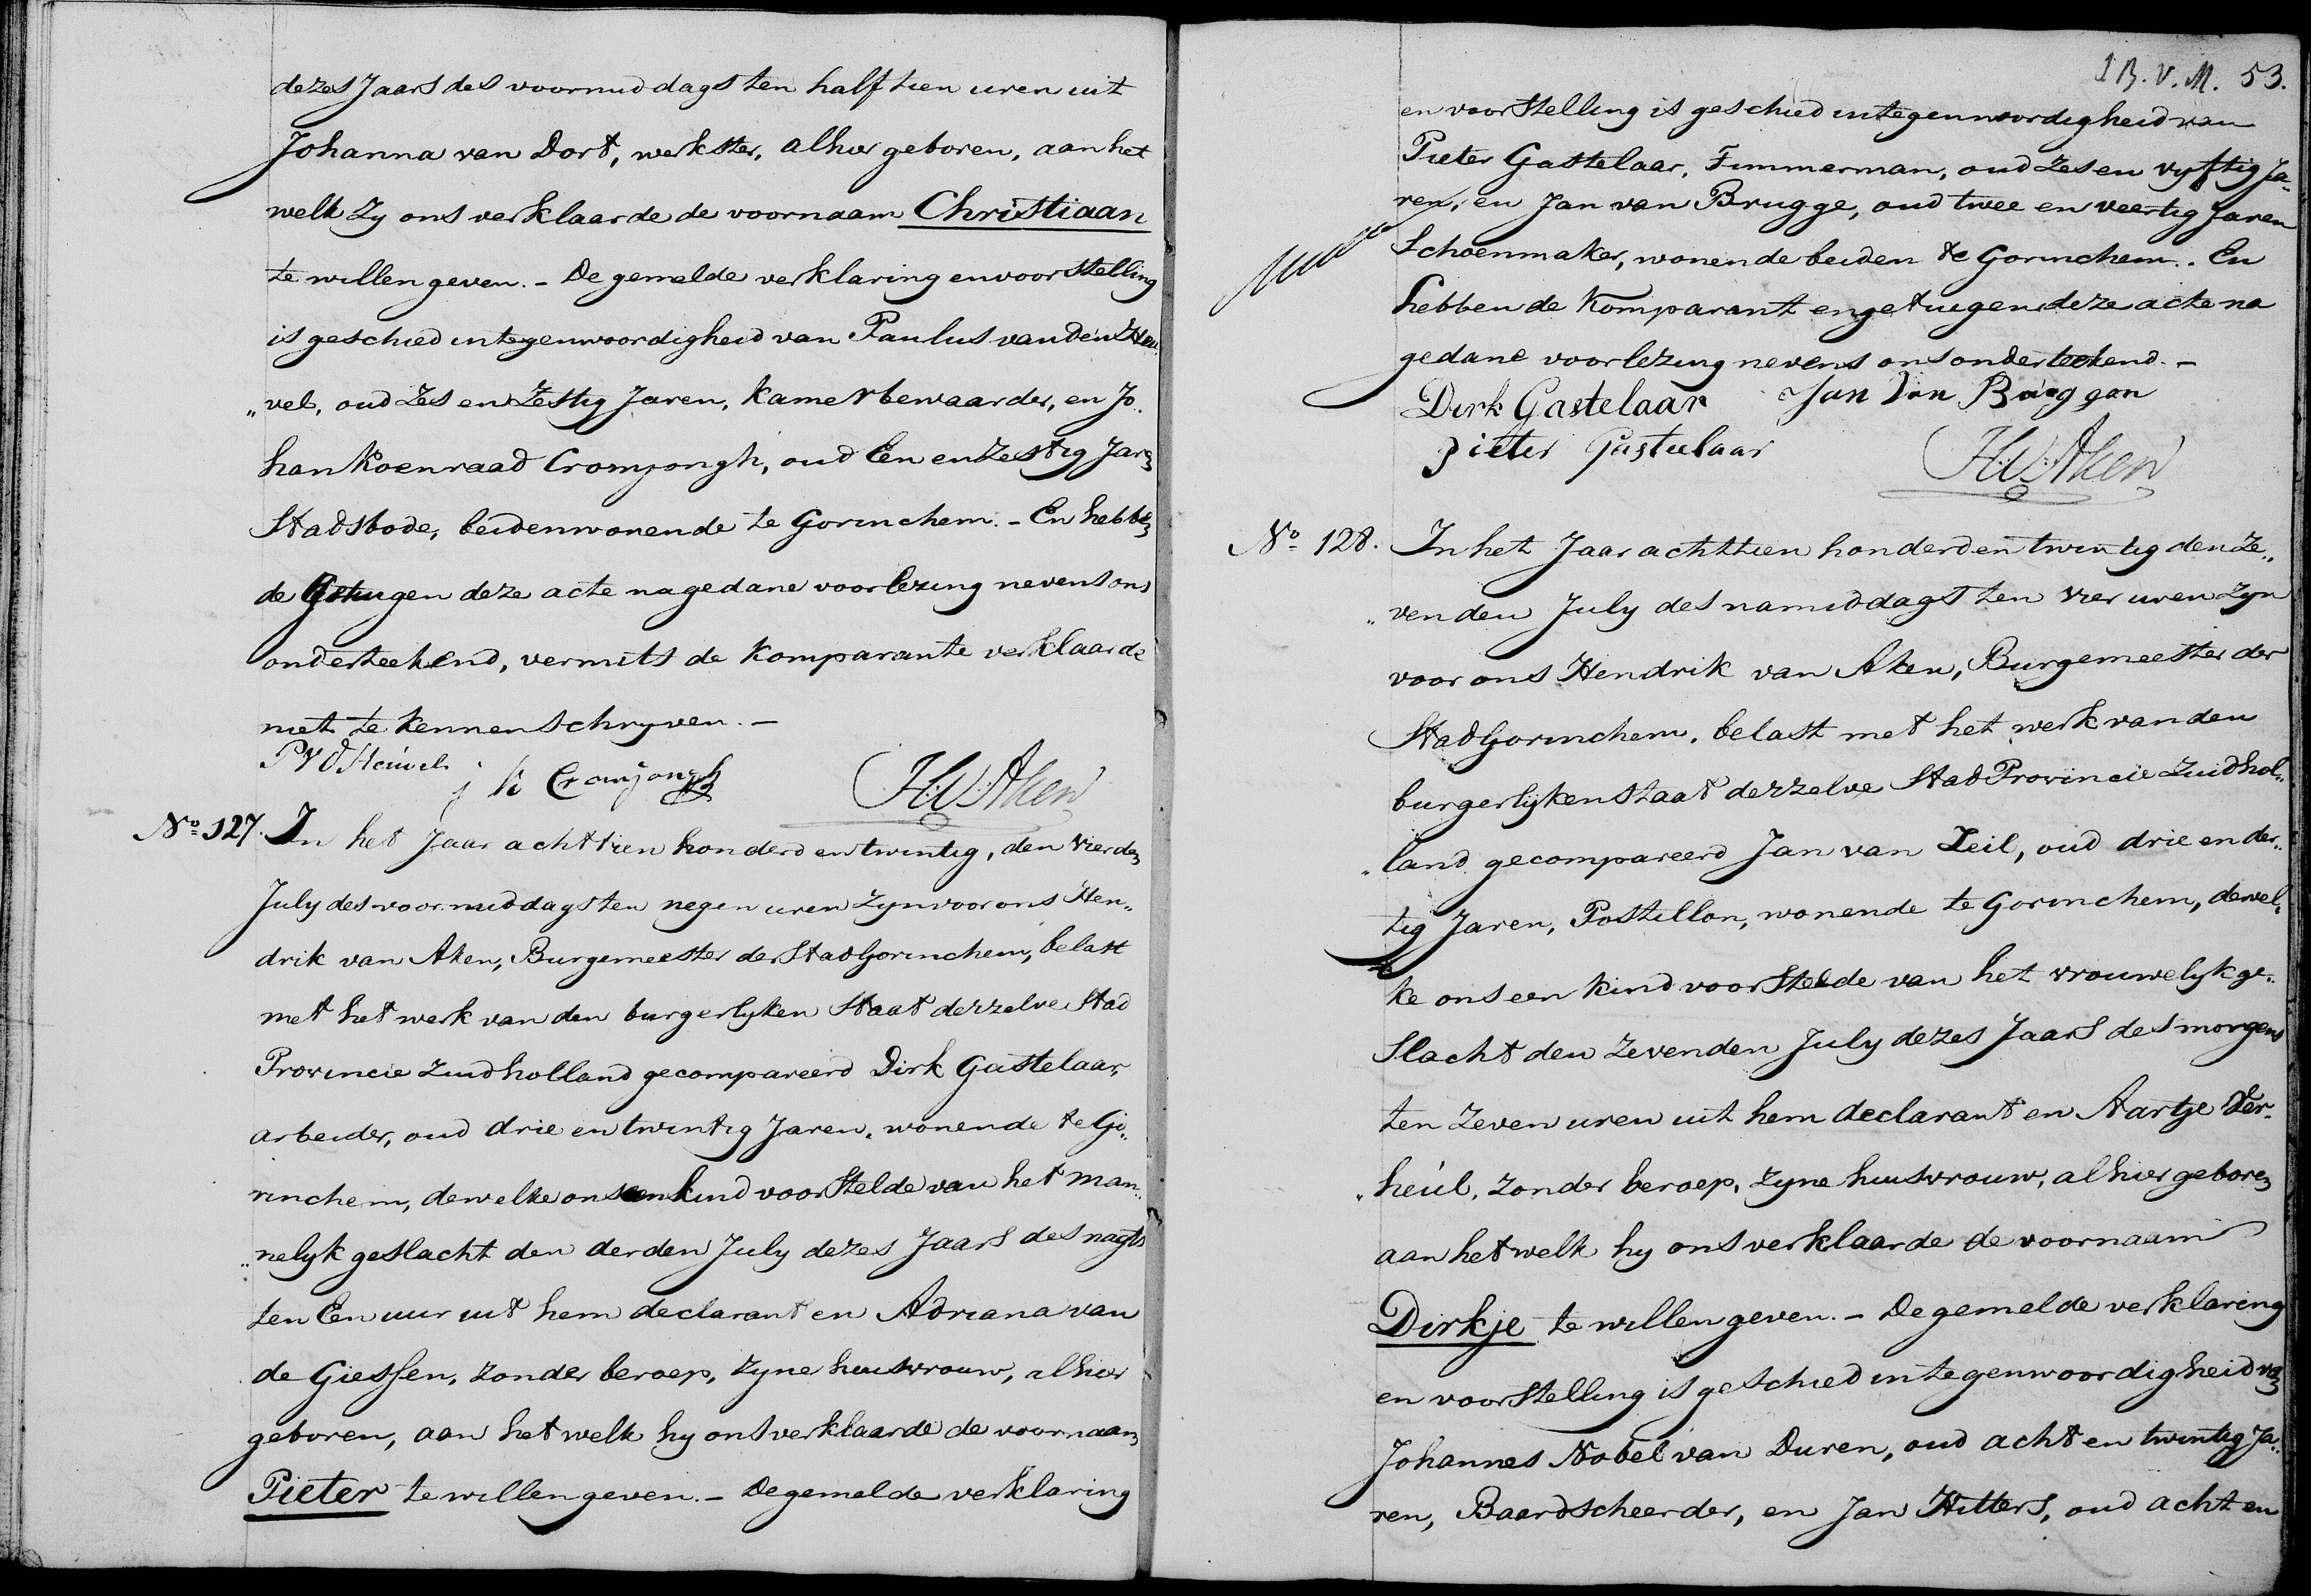 dezes Jaars des voormiddags ten half tien uren uit
Johanna van Dort, werkster, alhier geboren, aan het
welk zy ons verklaarde de voornaam Christiaan
te willen geven. - De gemelde verklaring en voorstelling
is geschied in tegenwoordigheid van Paulus van den Heu„
„vel, oud zes en zestig Jaren, Kamerbewaarder, en Jo„
han Koenraad Cromjongh, oud Een en zestig Jaren
Stadsbode, beiden wonende te Gorinchem. - En hebben
de Getuigen deze acte na gedane voorlezing nevens ons
onderteekend, vermits de Komparante verklaarde
niet te kennen schryven. -
P V D Heuvel j k Cromjongh HVAken
No. 127. In het Jaar achttien honderd en twintig, den vierden
July des voormiddags ten negen uren zyn voor ons Hen„
drik van Aken, Burgemeester der Stad Gorinchem, belast
met het werk van den burgerlyken Staat derzelve Stad
Provincie Zuidholland gecompareerd Dirk Gastelaar,
arbeider, oud drie en twintig Jaren, wonende te Go„
rinchem, dewelke ons een kind voorstelde van het man„
„nelyk geslacht den derden July dezes Jaars des nagts
ten Een uur uit hem declarant en Adriana van
de Giessen, zonder beroep, zyne huisvrouw, alhier
geboren, aan het welk hy ons verklaarde de voornaam
Pieter te willen geven. - De gemelde verklaring
I B. V. M. 53.
en voorstelling is geschied in tegenwoordigheid van
Pieter Gastelaar, Timmerman, oud zes en vyftig Ja„
ren, en Jan van Brugge, oud twee en veertig Jaren
Schoenmaker, wonende beiden te Gorinchem. En
hebben de Komparant en getuigen deze acte na
gedane voorlezing nevens ons onderteekend. -
Dirk Gastelaar Jan Van Bruggen
Pieter Gastelaar HVAken
No. 128. In het Jaar achttien honderd en twintig den Ze„
„venden July des namiddags ten vier uren zyn
voor ons Hendrik van Aken, Burgemeester der
Stad Gorinchem, belast met het werk van den
burgerlyken Staat derzelve Stad Provincie Zuidhol„
„land gecompareerd Jan van Zeil, oud drie en der„
tig Jaren, Postillon, wonende te Gorinchem, dewel„
ke ons een kind voorstelde van het vrouwelyk ge„
slacht den zevenden July dezes Jaars des morgens
ten zeven uren uit hem declarant en Aartje Ver„
„heul, zonder beroep, zyne huisvrouw, alhier geboren
aan het welk hy ons verklaarde de voornaam
Dirkje te willen geven. - De gemelde verklaring
en voorstelling is geschied in tegenwoordigheid van
Johannes Nobel van Duren, oud acht en twintig Ja„
ren, Baardscheerder, en Jan Hitters, oud acht en